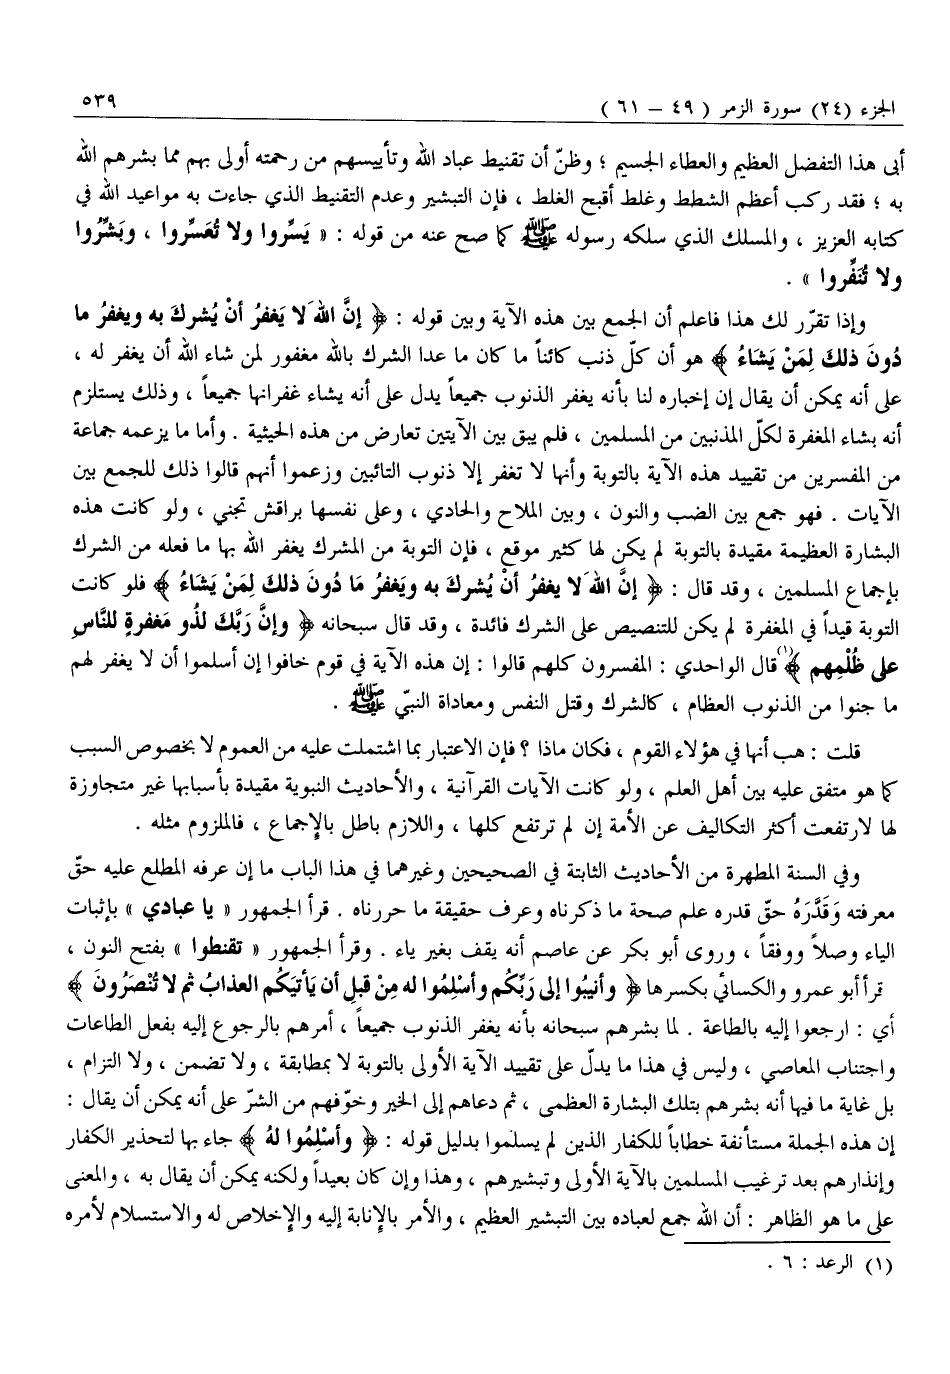 الجزء (٢٤) سورة الزمر ( ٤٩ – ٦١ ) ٥٣٩
أبى هذا التفضل العظيم والعطاء الجسيم ؛ وظنّ أن تقنيط عباد الله وتأييسهم من رحمته أولى بهم مما بشرهم الله
به ؛ فقد ركب أعظم الشطط وغلط أقبح الغلط ، فإن التبشير وعدم التقنيط الذي جاءت به مواعيد الله في
كتابه العزيز ، والمسلك الذي سلكه رسوله ﷺ كما صح عنه من قوله : « يَسِّروا ولا تُعَسِّروا ، وبَشِّرُوا
ولا تُنَفِّروا » .
وإذا تقرّر لك هذا فاعلم أن الجمع بين هذه الآية وبين قوله : ﴿ إنَّ الله لا يَغفرُ أنْ يُشركَ به ويغفرُ ما
دُونَ ذلكَ لِمَنْ يَشَاءُ ﴾ هو أن كلّ ذنب كائناً ما كان ما عدا الشرك بالله مغفور لمن شاء الله أن يغفر له ،
على أنه يمكن أن يقال إن إخباره لنا بأنه يغفر الذنوب جميعاً يدل على أنه يشاء غفرانها جميعاً ، وذلك يستلزم
أنه بشاء المغفرة لكلّ المذنبين من المسلمين ، فلم يبق بين الآيتين تعارض من هذه الحيثية . وأما ما يزعمه جماعة
من المفسرين من تقييد هذه الآية بالتوبة وأنها لا تغفر إلا ذنوب التائبين وزعموا أنهم قالوا ذلك للجمع بين
الآيات . فهو جمع بين الضب والنون ، وبين الملاح والحادي ، وعلى نفسها براقش تجني ، ولو كانت هذه
البشارة العظيمة مقيدة بالتوبة لم يكن لها كثير موقع ، فإن التوبة من المشرك يغفر الله بها ما فعله من الشرك
بإجماع المسلمين ، وقد قال : ﴿ إنَّ الله لا يغفرُ أنْ يُشركَ به ويَغفرُ مَا دُونَ ذلكَ لِمَنْ يَشَاءُ ﴾ فلو كانت
التوبة قيداً في المغفرة لم يكن للتنصيص على الشرك فائدة ، وقد قال سبحانه ﴿ وإنَّ رَبَّكَ لذُو مَغفرةٍ للنَّاسِ
على ظُلْمِهم ﴾(١) قال الواحدي : المفسرون كلهم قالوا : إن هذه الآية في قوم خافوا إن أسلموا أن لا يغفر لهم
ما جنوا من الذنوب العظام ، كالشرك وقتل النفس ومعاداة النبيّ ﷺ .
قلت : هب أنها في هؤلاء القوم ، فكان ماذا ؟ فإن الاعتبار بما اشتملت عليه من العموم لا بخصوص السبب
كما هو متفق عليه بين أهل العلم ، ولو كانت الآيات القرآنية ، والأحاديث النبوية مقيدة بأسبابها غير متجاوزة
لها لارتفعت أكثر التكاليف عن الأمة إن لم ترتفع كلها ، واللازم باطل بالإجماع ، فالملزوم مثله .
وفي السنة المطهرة من الأحاديث الثابتة في الصحيحين وغيرهما في هذا الباب ما إن عرفه المطلع عليه حقّ
معرفته وَقَدَّرَهُ حقّ قدره علم صحة ما ذكرناه وعرف حقيقة ما حررناه . قرأ الجمهور « يا عبادي » بإثبات
الياء وصلاً ووقفاً ، وروى أبو بكر عن عاصم أنه يقف بغير ياء . وقرأ الجمهور « تقنطوا » بفتح النون ،
قرأ أبو عمرو والكسائي بكسرها ﴿ وأنيبُوا إلى رَبِّكُم وأسْلِمُوا له مِنْ قبلِ أن يَأتيَكُم العذابُ ثم لا تُنْصَرُونَ ﴾
أي : ارجعوا إليه بالطاعة . لما بشرهم سبحانه بأنه يغفر الذنوب جميعاً ، أمرهم بالرجوع إليه بفعل الطاعات
واجتناب المعاصي ، وليس في هذا ما يدلّ على تقييد الآية الأولى بالتوبة لا بمطابقة ، ولا تضمن ، ولا التزام ،
بل غاية ما فيها أنه بشرهم بتلك البشارة العظمى ، ثم دعاهم إلى الخير وخوّفهم من الشرّ على أنه يمكن أن يقال :
إن هذه الجملة مستأنفة خطاباً للكفار الذين لم يسلموا بدليل قوله : ﴿ وأسْلِمُوا لهُ ﴾ جاء بها لتحذير الكفار
وإنذارهم بعد ترغيب المسلمين بالآية الأولى وتبشيرهم ، وهذا وإن كان بعيداً ولكنه يمكن أن يقال به ، والمعنى
على ما هو الظاهر : أن الله جمع لعباده بين التبشير العظيم ، والأمر بالإنابة إليه والإخلاص له والاستسلام لأمره
(١) الرعد : ٦ .